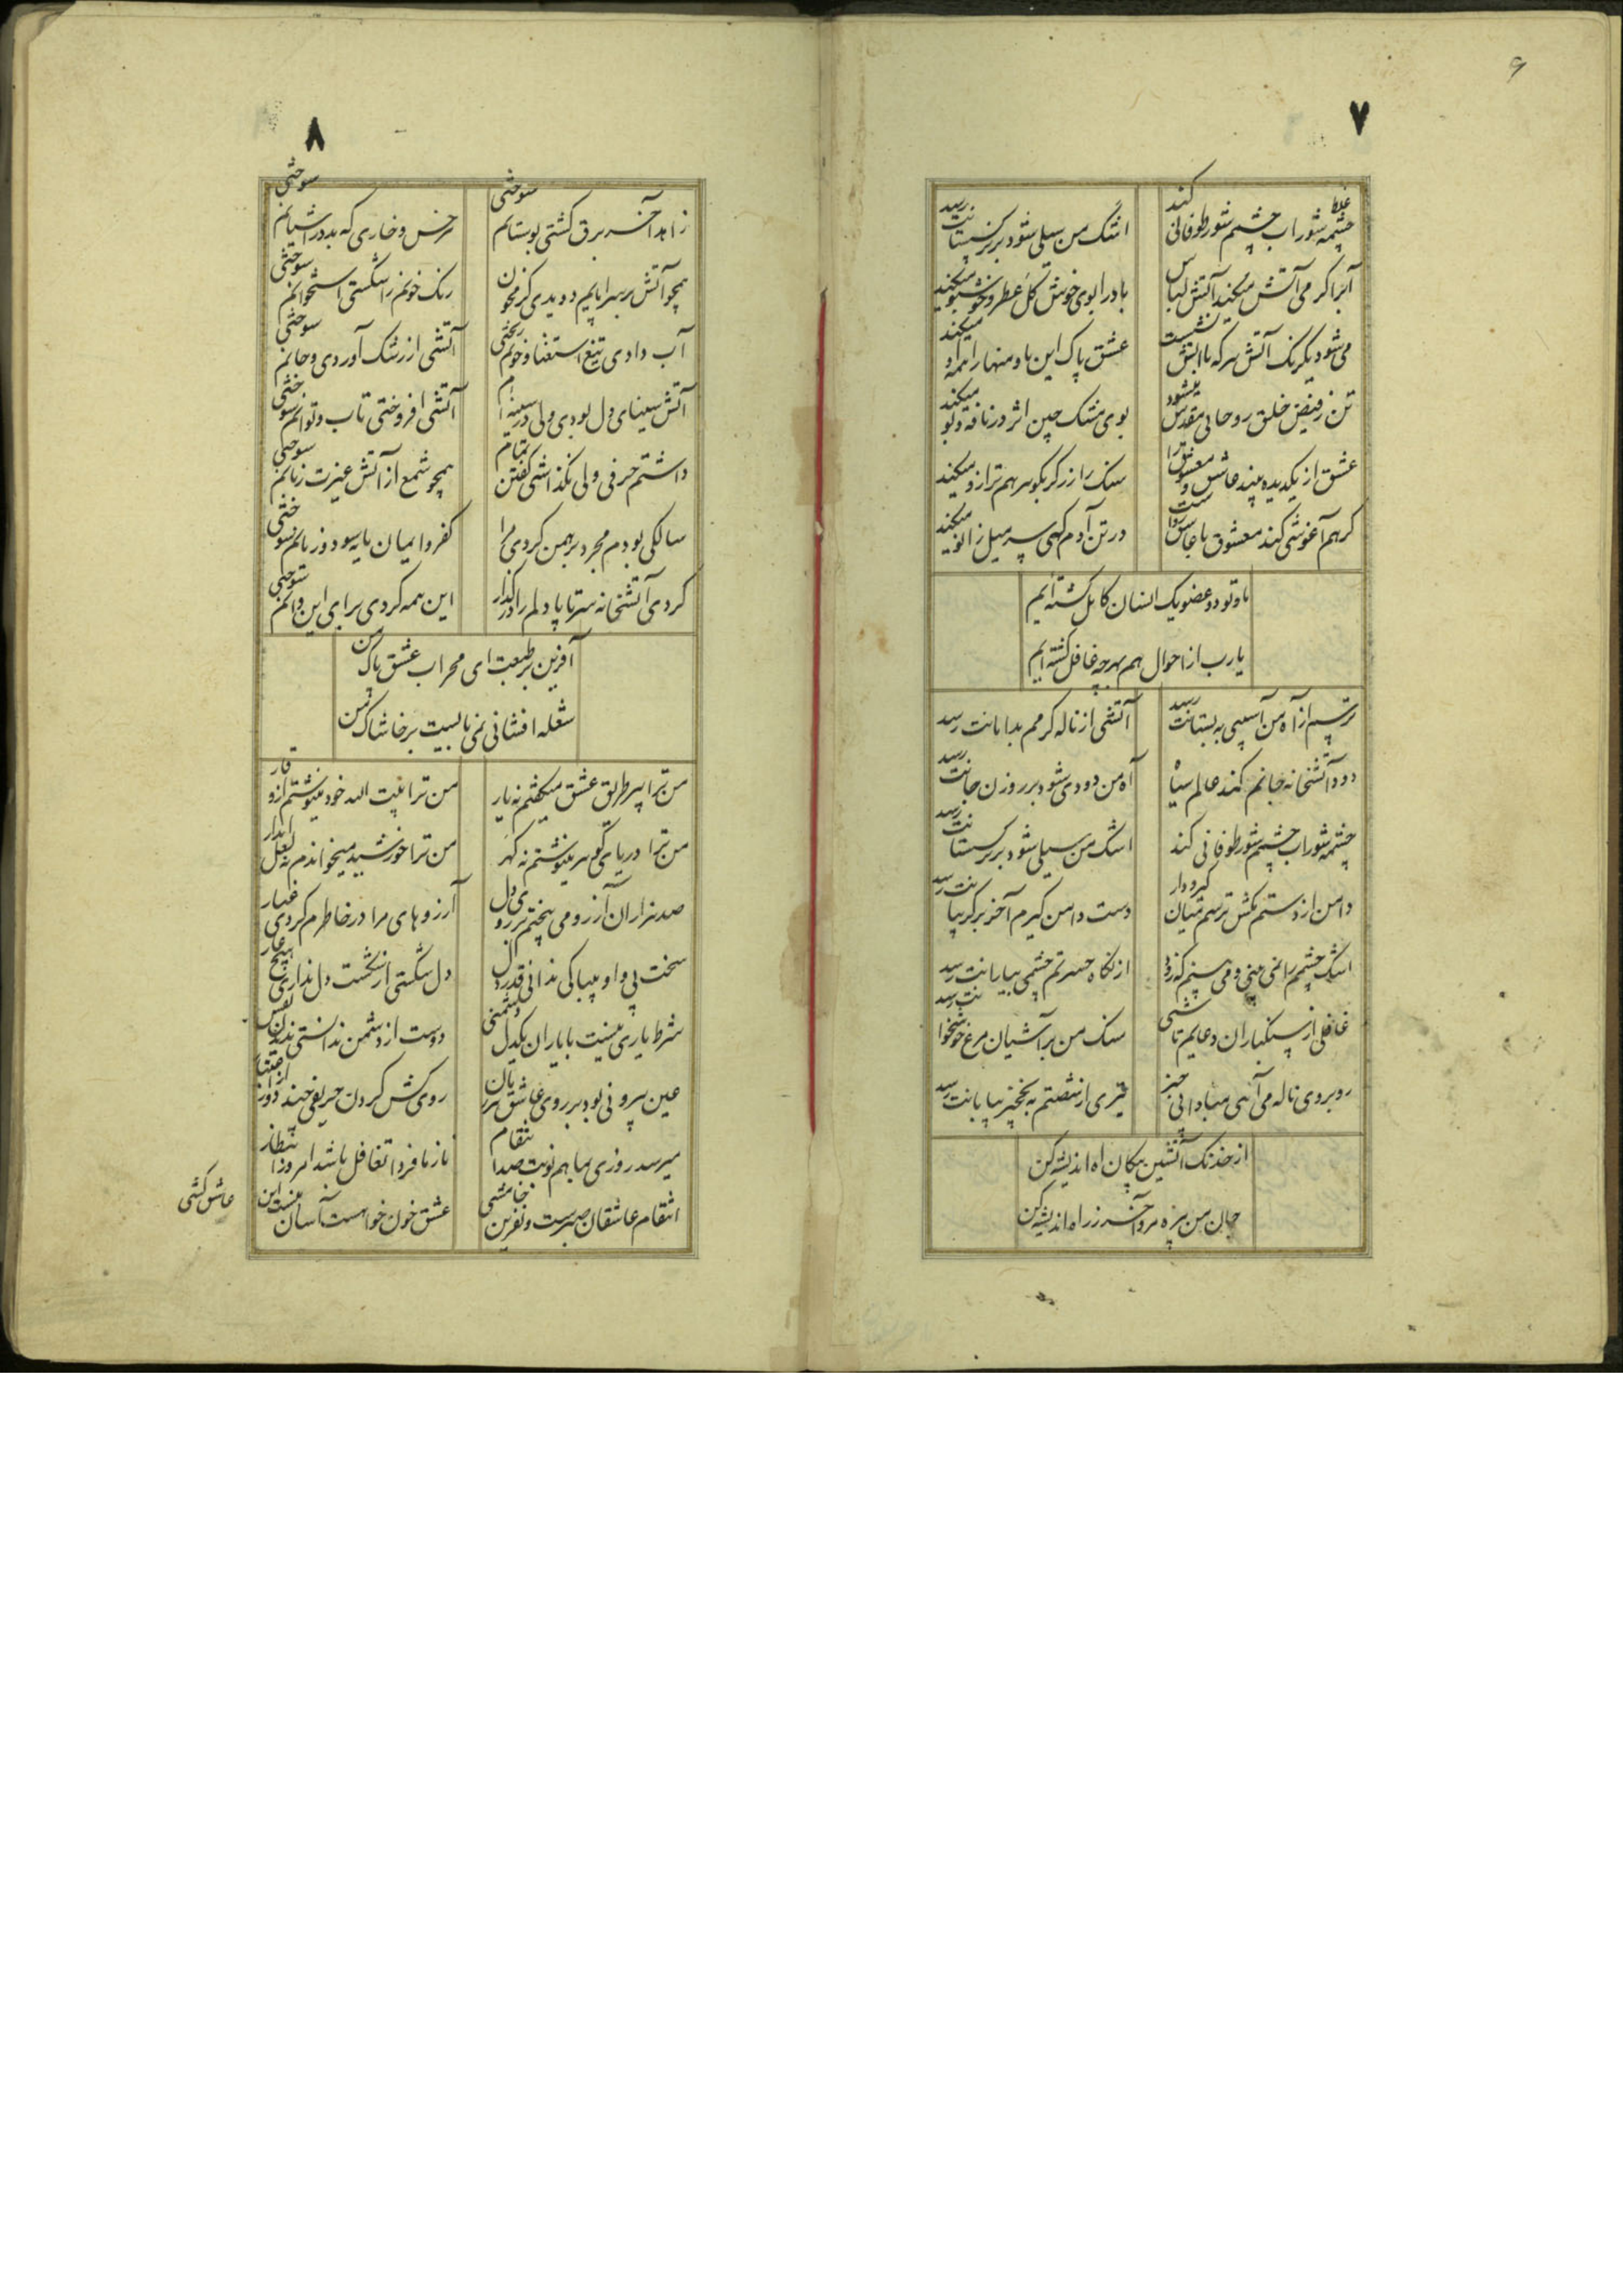 ۶
۷
غلط
چشمه شوراب چشمم شور طوفانی کند
اشک من سیلی شود بر نرگستانت رسد
آب را گرمی آتش میکند آتش لباس
باد را بوی خوش گل عطر و خوشبو میکند
می شود یکرنگ آتش هر که با آتش نشست
عشق پاک این ما و منها را همه او میکند
تن ز فیض خلق روحانی مقدس میشود
بوی مشک چین اثر در نافه و بو میکند
عشق از یک دیده بیند عاشق و معشوق را
سنک را زرگر بگوهر هم ترازو میکند
گر هم آغوشی کند معشوق با عاشق رواست
در تن آدم گهی سر میل زانو میکند
ما و تو دو عضو یک انسان کامل گشته ایم
یارب از احوال هم بهر چه غافل گشته ایم
ترسم از آه من آسیبی به بستانت رسد
آتشی از ناله گرمم بدامانت رسد
دود آتشخانه جانم کند عالم سیاه
آه من دودی شود بر روزن جانت رسد
چشمه شوراب چشمم شور طوفانی کند
اشک من سیلی شود بر نرگستانت رسد
دامن از دستم مکش ترسم میان گیر و دار
دست دامن گیرم آخر بر گریبانت رسد
اشک چشمم را نمی بینی و می بینم که زود
از نگاه حسرتم چشمی بپایانت رسد
غافلی از سنکباران دعایم تا شبی
سنک من بر آشیان مرغ خوشخوانت رسد
روبروی ناله می آئی مبادا بی خبر
تیری از شصتم به نخچیر بیابانت رسد
از خدنک آتشین پیکان آه اندیشه کن
جان من بیره مرو آخر ز راه اندیشه کن
۸
زاهد آخر برق گشتی بوستانم سوختی
هر خس و خاری که بد در آشیانم سوختی
همچو آتش بر سراپایم دویدی گرم خون
رنک خونم را شکستی استخوانم سوختی
آب دادی تیغ استغنا و خونم ریختی
آتشی از رشک آوردی و جانم سوختی
آتش سینای دل بودی ولی در سینه ام
آتشی افروختی تاب و توانم سوختی
داشتم حرفی ولی نگذاشتی گفتن تمام
همچو شمع از آتش غیرت زبانم سوختی
سالکی بودم مجرد برهمن کردی مرا
کفر و ایمان مایه سود و زیانم سوختی
کردی آتشخانه سر تا پا دلم را در گداز
این همه کردی برای این و آنم سوختی
آفرین بر طبعت ای محراب عشق پاک من
شعله افشانی نمی بایست بر خاشاک من
من ترا پیر طریق عشق میگفتم نه یار
من ترا بیت الله خود مینوشتم از وقار
من ترا دریای گوهر مینوشتم نه گهر
من ترا خورشید میخواندم نه لعل آبدار
صد هزاران آرزو می پختم بر روی دل
آرزوهای مرا در خاطرم کردی غبار
سخت بی پروا و بیباکی ندانی قدر دل
دل شکستی از شکست دل نداری هیچ عار
شرط یاری نیست با یاران یکدل دشمنی
دوست از دشمن ندانستی ندیدن
عین بیرونی بود بر روی عاشق
روی کش کردن حریفی چند
میرسد روزی بما هم نوبت صد انتقام
ناز ما فردا تغافل باشد امروز انتظار
انتقام عاشقان صبرست و نفرین خامشی
عشق خون خواهست آسان نیست این
عاشق کشی